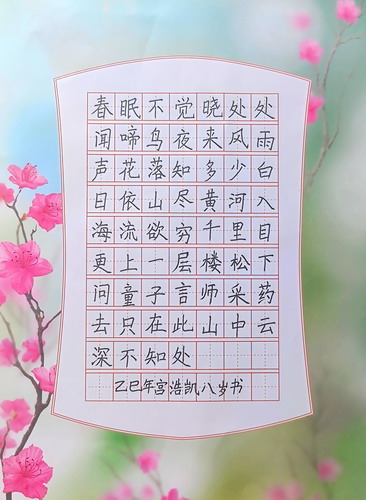 春眠不觉晓处处
闻啼鸟夜来风雨
声花落知多少白
日依山尽黄河入
海流欲穷千里目
更上一层楼松下
问童子言师采药
去只在此山中云
深不知处
乙巳年宫浩凯八岁书